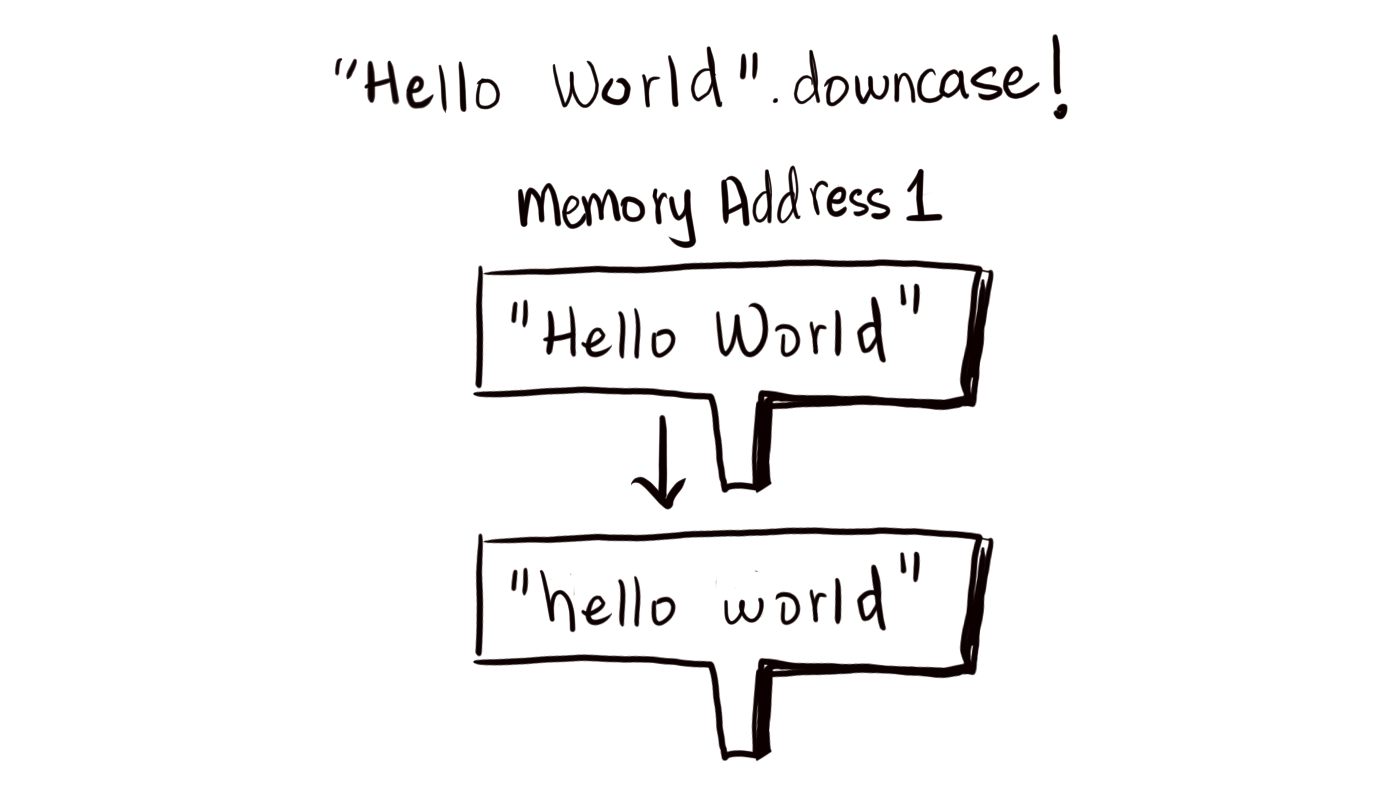 "Hello World".downcase!
Memory Address 1
"Hello World"
"hello world"